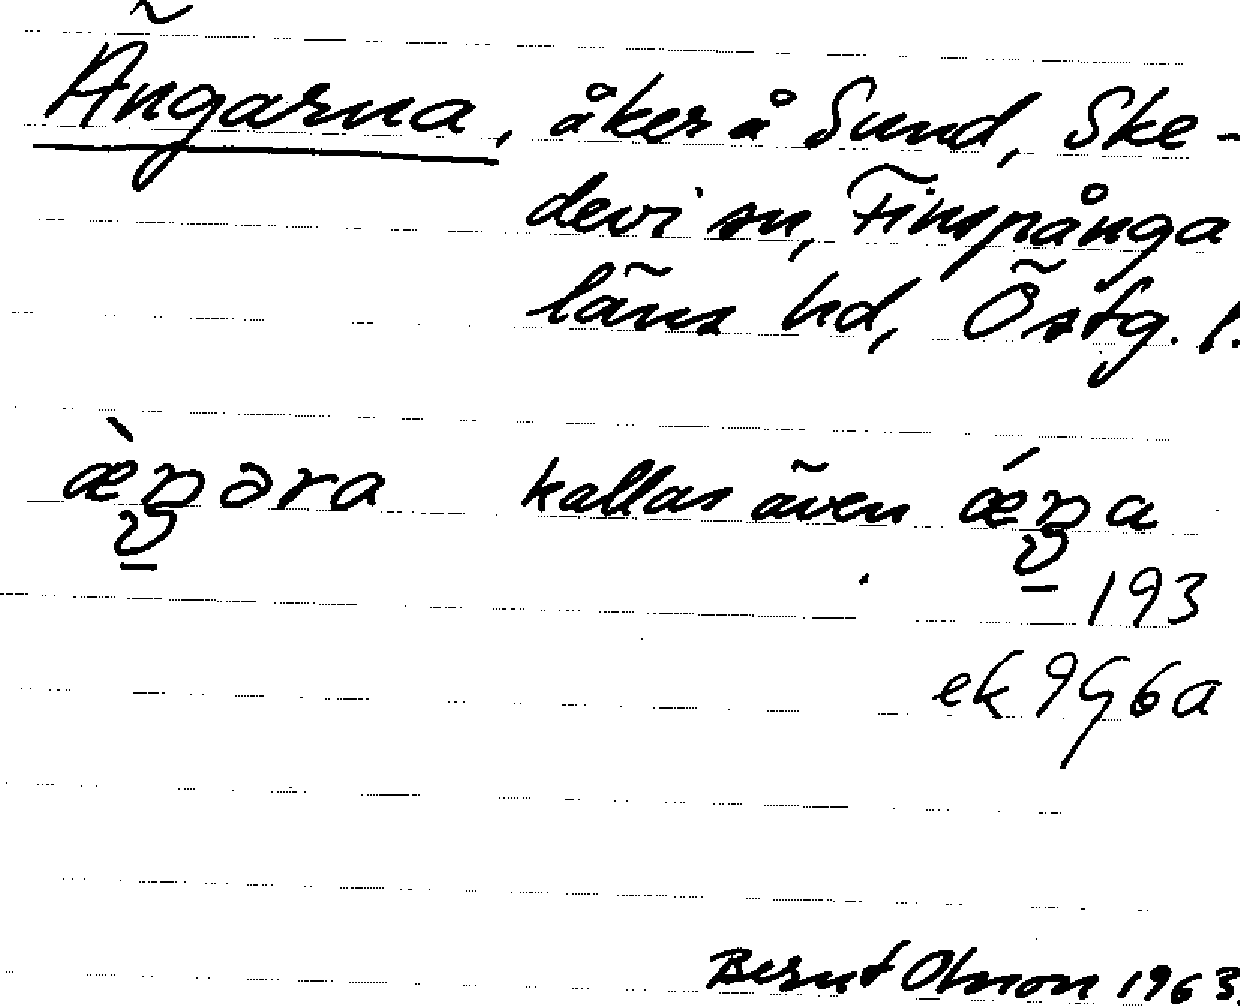 Ängarna, åker å Sund, Ske-
devi sn, Finspånga
läns hd, Östg. l.
æ̀ŋəra kallas även ǽŋa
193
ek 9G6a
Bernt Olsson 1963.